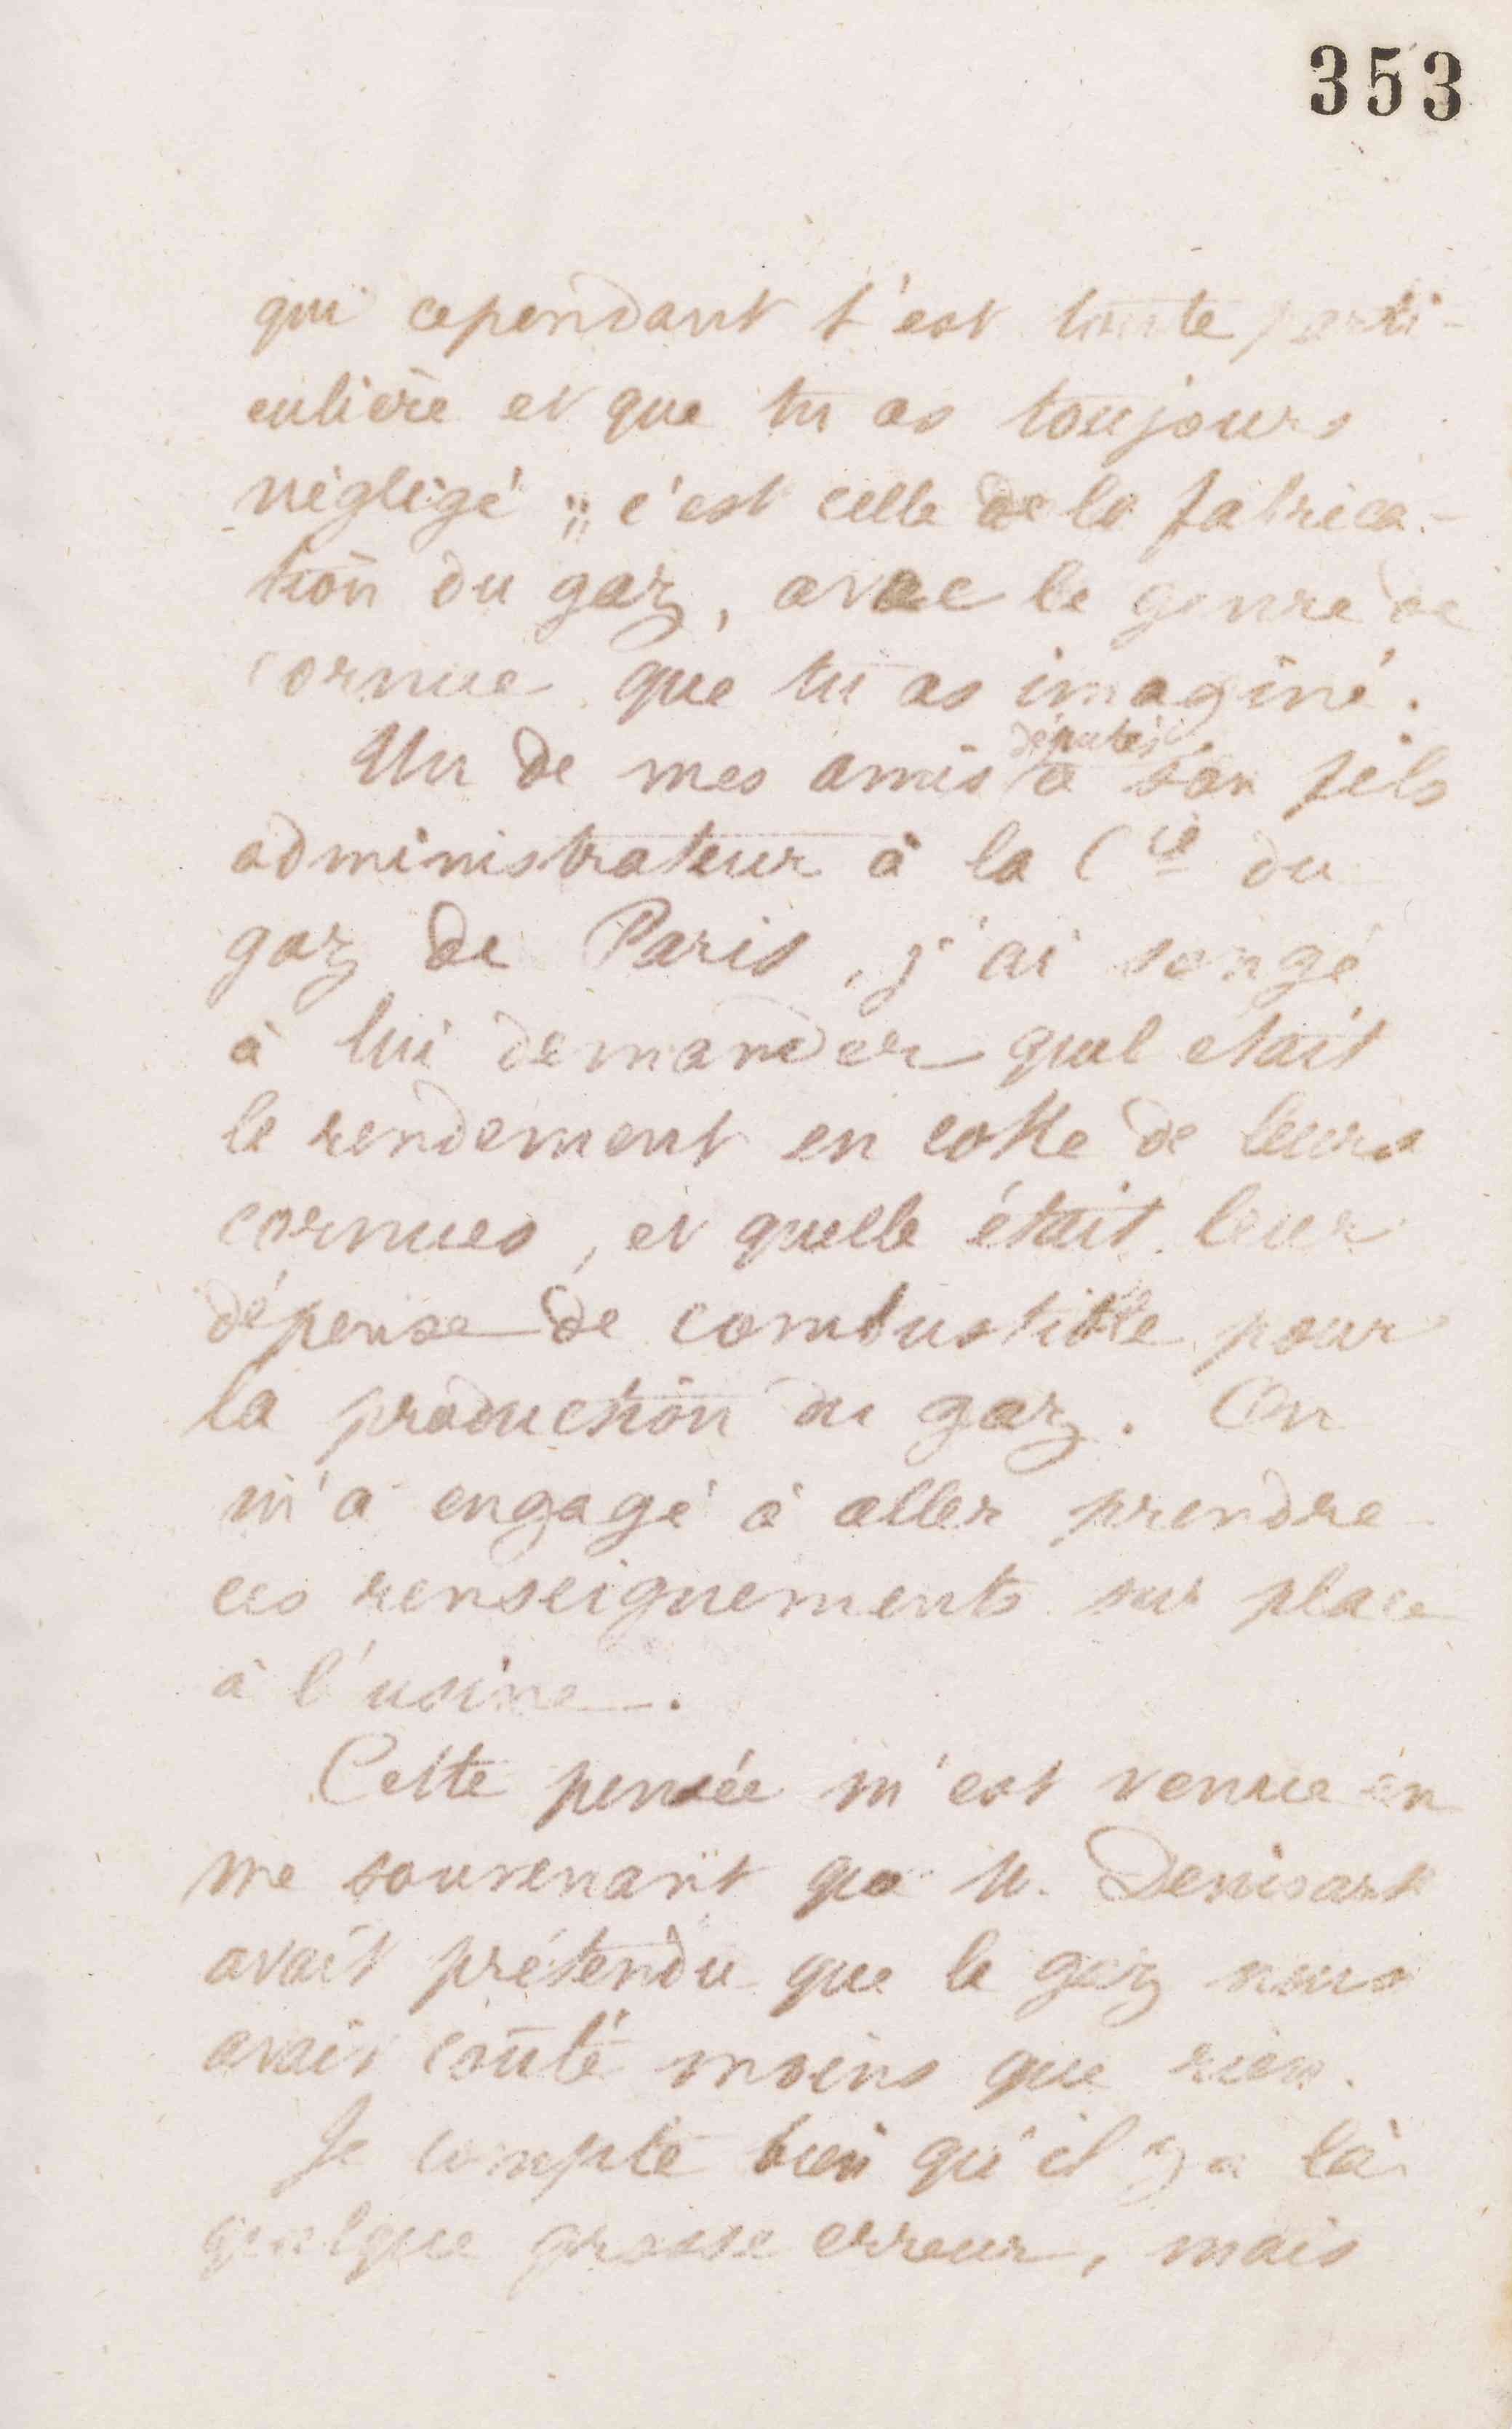 353
qui cependant t'est toute parti-
culière et que tu as toujours
négligé ; c'est celle de la fabrica-
tion du gaz, avec le genre de
cornue que tu as imaginé.
députés
Un de mes amis a son fils
administrateur à la Cie du
gaz de Paris, j'ai songé
à lui demander quel était
le rendement en coke de leurs
cornues, et quelle était leur
dépense de combustible pour
la production du gaz. On
m'a engagé à aller prendre
ces renseignements sur place
à l'usine.
Cette pensée m'est venue en
me souvenant que M. Denisart
avait prétendu que le gaz nous
avait coûté moins que rien.
Je compte bien qu'il y a là
quelque grosse erreur, mais